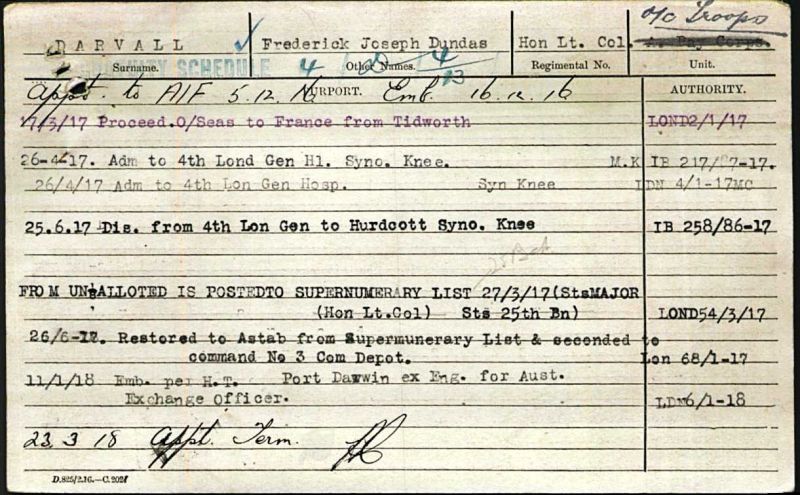 O/C Troops
DARVALL Frederick Joseph Dundas Hon Lt. Col. A. Pay Corps.
Surname. Other Names. Regimental No. Unit.
SCHEDULE 4
PURPORT. AUTHORITY.
Appt. to AIF 5.12.16 Emb. 16.12.16
7/3/17 Proceed.O/Seas to France from Tidworth LOND2/1/17
26-4-17. Adm to 4th Lond Gen Hl. Syno. Knee. M.K IB 217/87-17.
26/4/17 Adm to 4th Lon Gen Hosp. Syn Knee LDN 4/1-17MC
25.6.17 Dis. from 4th Lon Gen to Hurdcott Syno. Knee IB 258/86-17
25 Bat
FROM UNALLOTED IS POSTEDTO SUPERNUMERARY LIST 27/3/17(StsMAJOR
(Hon Lt.Col) Sts 25th Bn) LOND54/3/17
26/6-17. Restored to Astab from Supermunerary List & seconded to
command No 3 Com Depot. Lon 68/1-17
11/1/18 Emb. per H.T. Port Darwin ex Eng. for Aust.
Exchange Officer. LDN6/1-18
23.3 18 Appt. Term.
D.825/2.16.—C.202